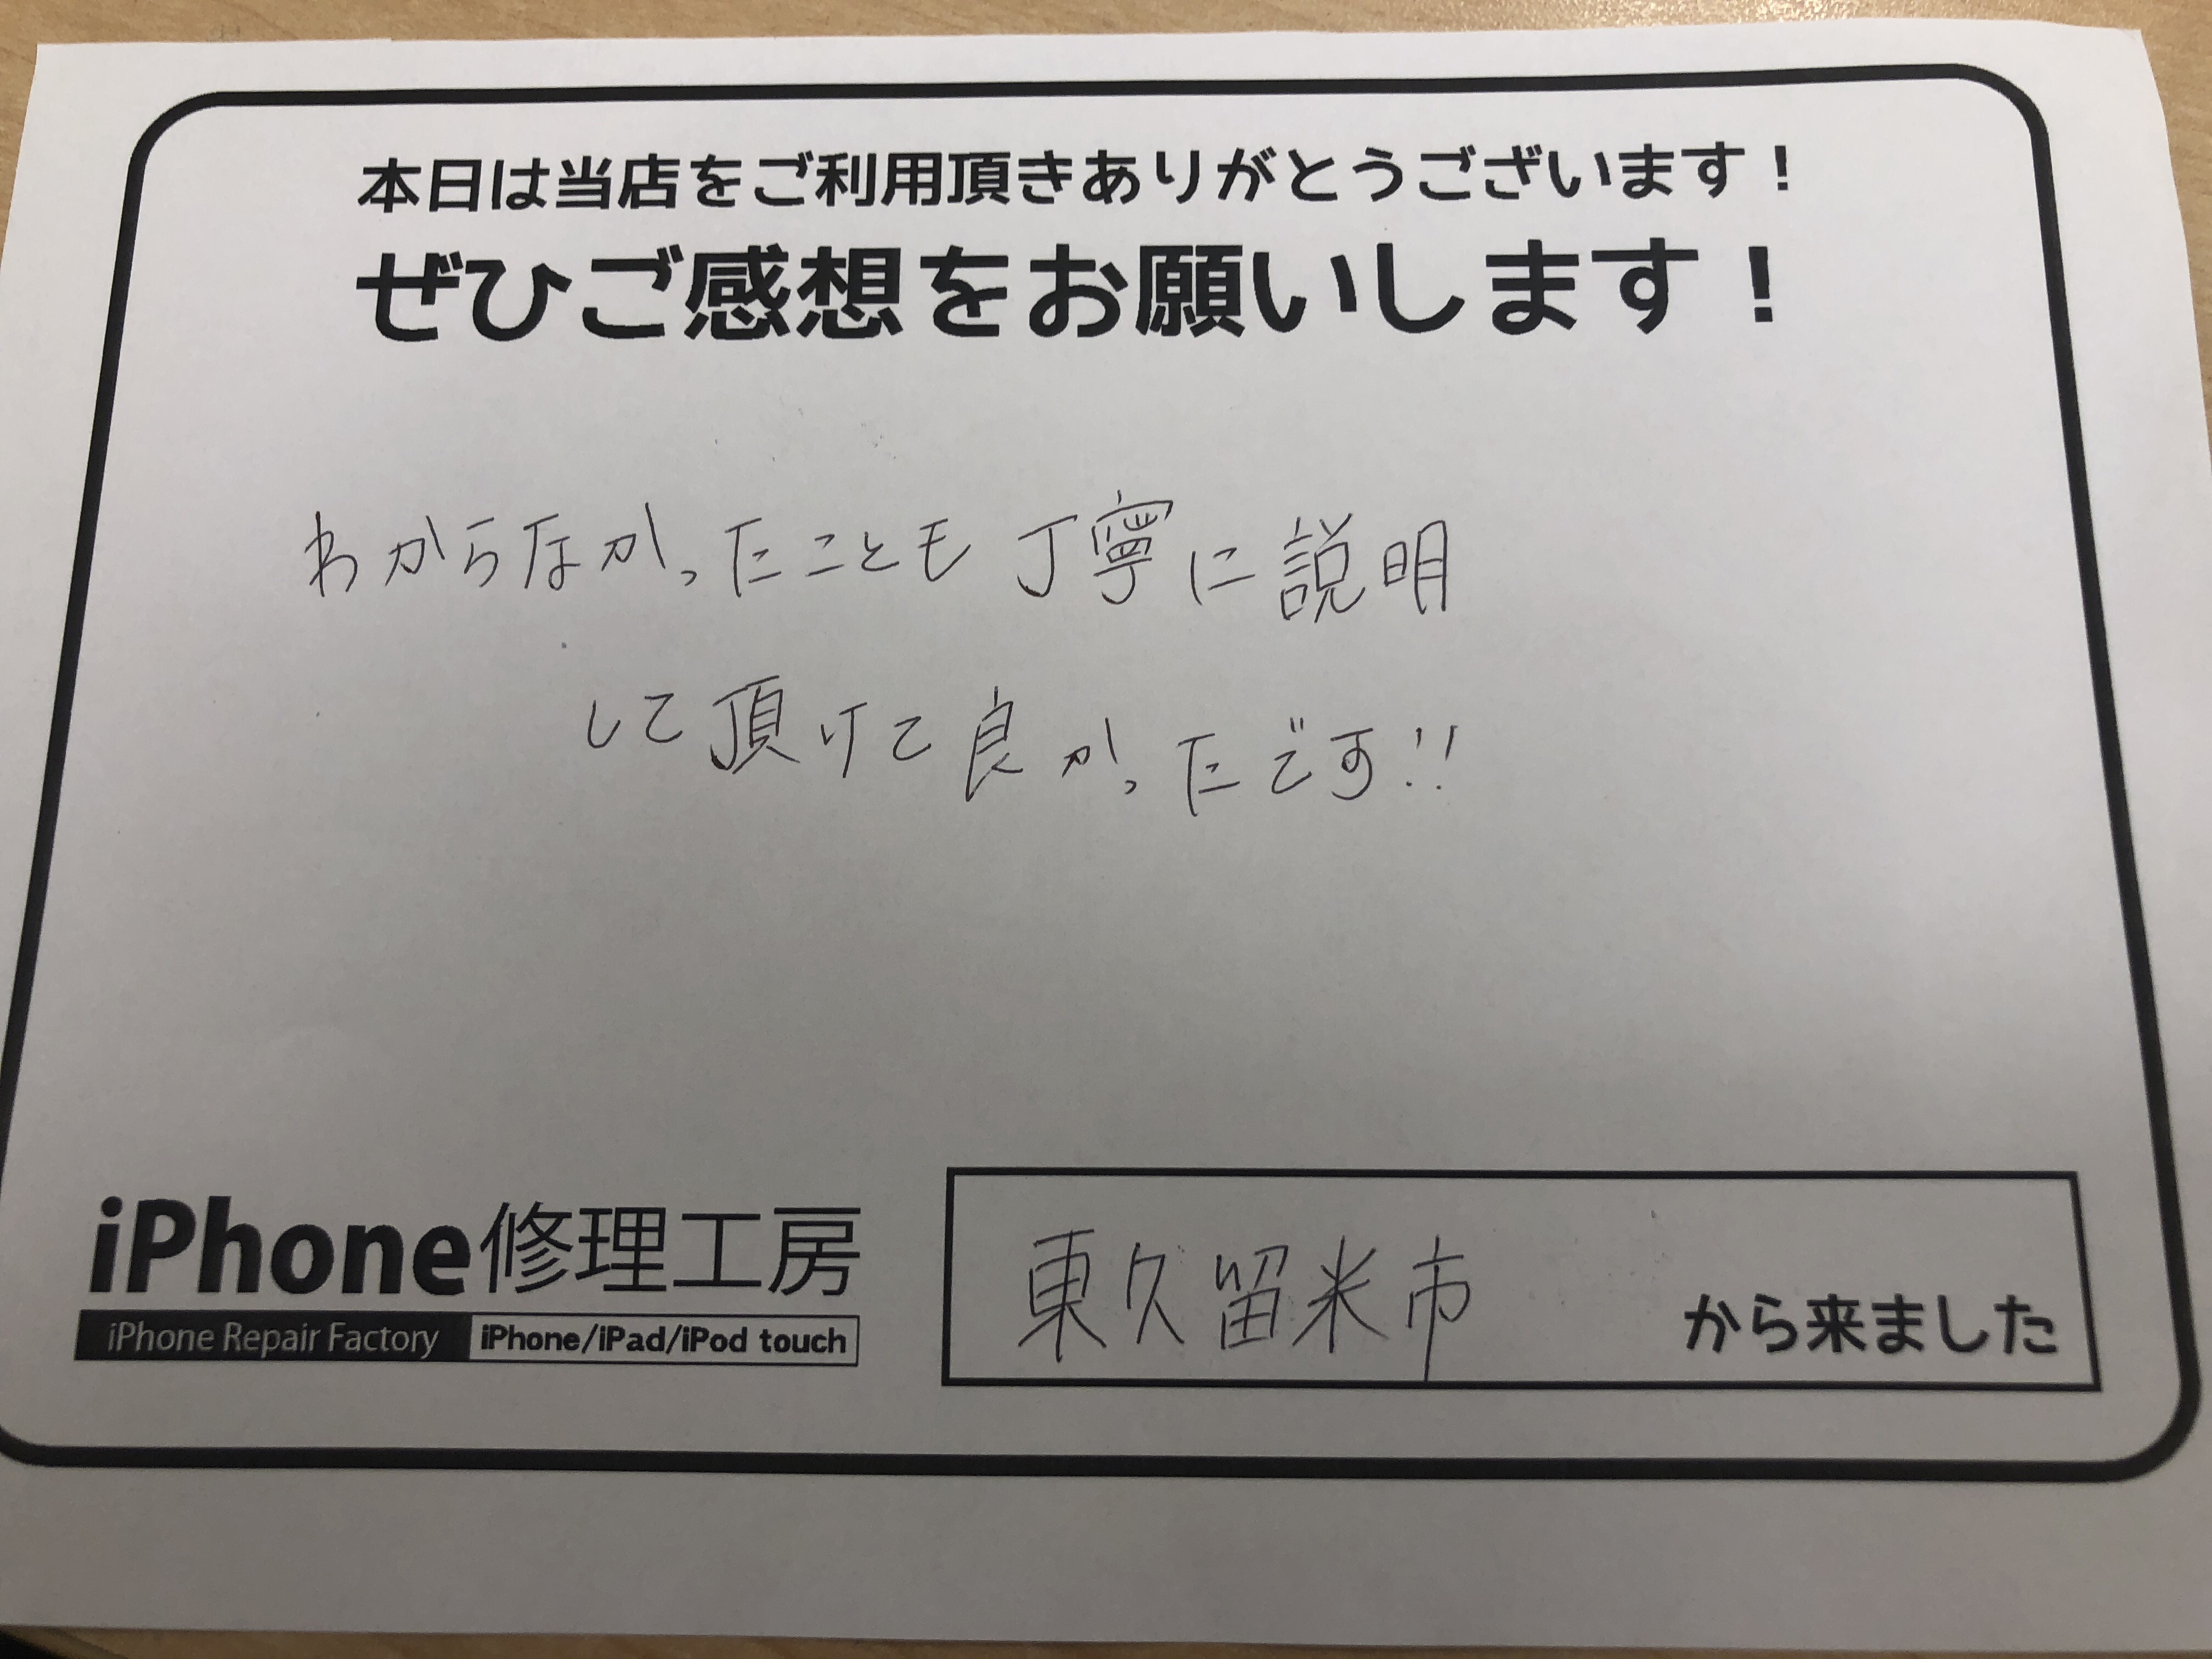 本日は当店をご利用頂きありがとうございます！
ぜひご感想をお願いします！
わからなかったことも丁寧に説明
して頂けて良かったです!!
iPhone修理工房
iPhone Repair Factory iPhone/iPad/iPod touch
東久留米市 から来ました